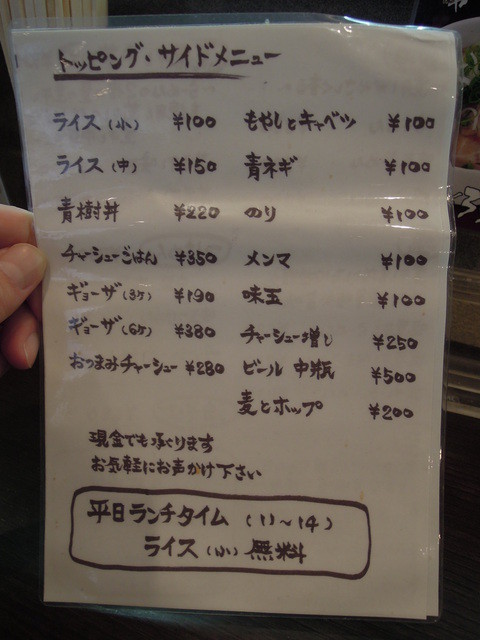 トッピング・サイドメニュー
ライス(小) ¥100
ライス(中) ¥150
青樹丼 ¥220
チャーシューごはん ¥350
ギョーザ(3ケ) ¥190
ギョーザ(6ケ) ¥380
おつまみチャーシュー ¥280
もやしとキャベツ ¥100
青ネギ ¥100
のり ¥100
メンマ ¥100
味玉 ¥100
チャーシュー増し ¥250
ビール 中瓶 ¥500
麦とホップ ¥200
現金でも承ります
お気軽にお声かけ下さい
平日ランチタイム (11〜14)
ライス(小) 無料